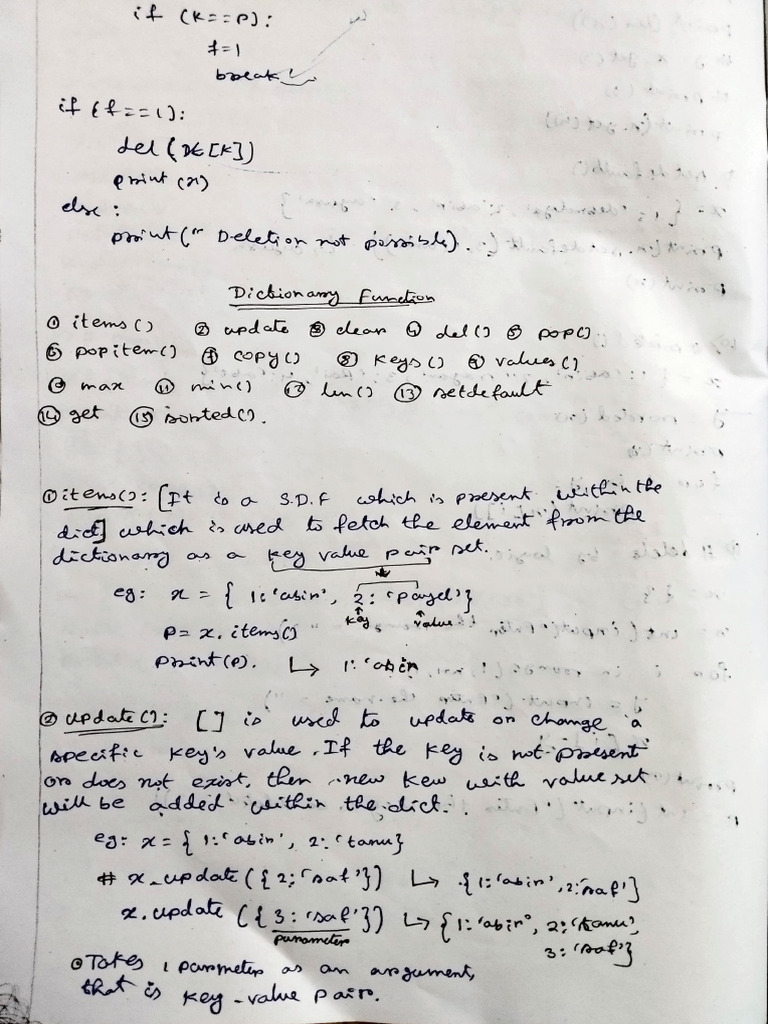 if (K==P):
f=1
break
if (f==1):
del (x[K])
print (x)
else :
print (" Deletion not possible).
Dictionary Function
① items() ② update ③ clear ④ del() ⑤ pop()
⑥ popitem() ⑦ copy() ⑧ Keys() ⑨ values()
⑩ max ⑪ min() ⑫ len() ⑬ setdefault
⑭ get ⑮ sorted().
① items(): [It is a S.D.F which is present within the
dict] which is used to fetch the element from the
dictionary as a key value pair set.
eg: x = { 1:'abir', 2: 'payel'}
key value
P= x. items()
print(P). ↳ 1: 'abir
② update(): [] is used to update or change a
specific key's value. If the key is not present
or does not exist, then new Kew with value set
will be added within the dict.
eg: x = { 1:'abir', 2:'tanu}
# x_update ({2:'saf'}) ↳ {1:'abir', 2:'saf'}
x.update ({3:'saf'}) ↳ {1:'abir', 2:'tanu',
parameter 3:'saf'}
Takes 1 parameter as an argument,
that is key-value pair.